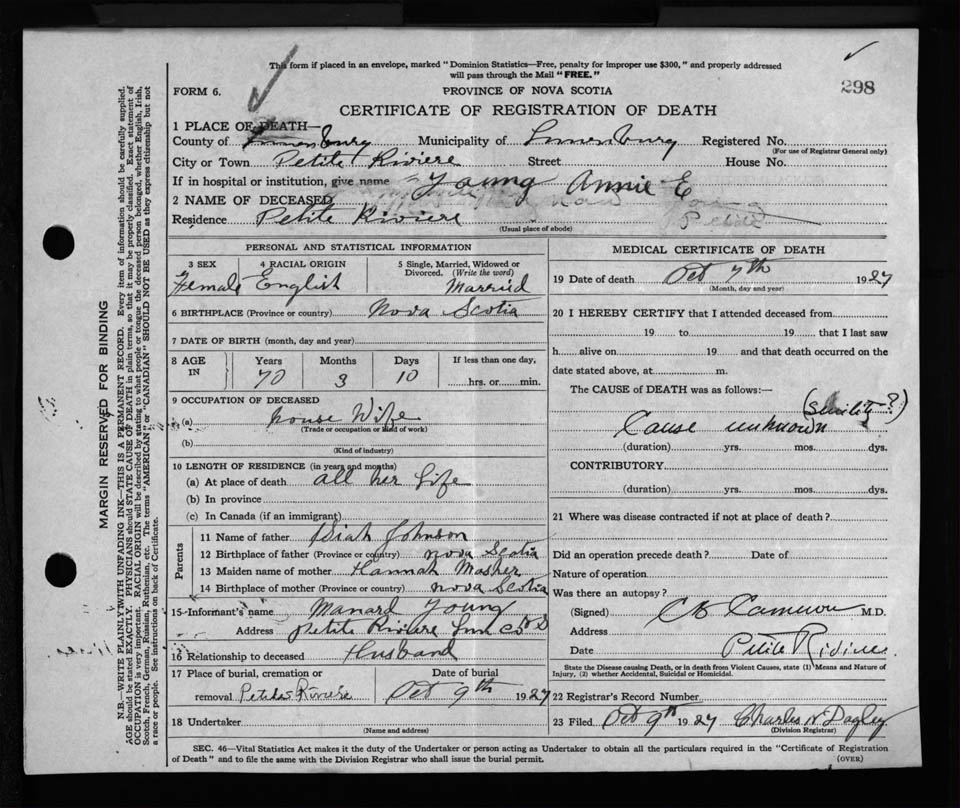 This form if placed in an envelope, marked "Dominion Statistics—Free, penalty for improper use $300," and properly addressed
will pass through the Mail "FREE."
298
FORM 6.
PROVINCE OF NOVA SCOTIA
CERTIFICATE OF REGISTRATION OF DEATH
1 PLACE OF DEATH—
County of Lunenburg Municipality of Lunenburg Registered No.
(For use of Registrar General only)
City or Town Petite Riviere Street House No.
If in hospital or institution, give name
2 NAME OF DECEASED Young Annie E
Residence Petite Riviere
(Usual place of abode)
PERSONAL AND STATISTICAL INFORMATION
3 SEX 4 RACIAL ORIGIN 5 Single, Married, Widowed or Divorced. (Write the word)
Female English Married
6 BIRTHPLACE (Province or country) Nova Scotia
7 DATE OF BIRTH (month, day and year)
8 AGE IN Years Months Days If less than one day,
70 3 10 hrs. or min.
9 OCCUPATION OF DECEASED
(a) House Wife
(Trade or occupation or kind of work)
(b)
(Kind of industry)
10 LENGTH OF RESIDENCE (in years and months)
(a) At place of death all her Life
(b) In province
(c) In Canada (if an immigrant)
Parents
11 Name of father Isiah Johnson
12 Birthplace of father (Province or country) Nova Scotia
13 Maiden name of mother Hannah Mosher
14 Birthplace of mother (Province or country) Nova Scotia
15 Informant's name Manard Young
Address Petite Riviere Lun Co N S
16 Relationship to deceased Husband
17 Place of burial, cremation or removal Date of burial
Petite Riviere Oct 9th 1927
18 Undertaker
(Name and address)
MEDICAL CERTIFICATE OF DEATH
19 Date of death Oct 7th 1927
(Month, day and year)
20 I HEREBY CERTIFY that I attended deceased from
19 to 19 that I last saw
h alive on 19 and that death occurred on the
date stated above, at m.
The CAUSE of DEATH was as follows:—
(Senility?)
Cause unknown
(duration) yrs. mos. dys.
CONTRIBUTORY
(duration) yrs. mos. dys.
21 Where was disease contracted if not at place of death?
Did an operation precede death? Date of
Nature of operation
Was there an autopsy?
(Signed) Cameron M.D.
Address
Date Petite Riviere
State the Disease causing Death, or in death from Violent Causes, state (1) Means and Nature of
Injury, (2) whether Accidental, Suicidal or Homicidal.
22 Registrar's Record Number
23 Filed Oct 9th 1927 Charles N Dagley
(Division Registrar)
SEC. 46—Vital Statistics Act makes it the duty of the Undertaker or person acting as Undertaker to obtain all the particulars required in the "Certificate of Registration
of Death" and to file the same with the Division Registrar who shall issue the burial permit.
(OVER)
MARGIN RESERVED FOR BINDING
N.B.—WRITE PLAINLY WITH UNFADING INK—THIS IS A PERMANENT RECORD. Every item of information should be carefully supplied.
AGE should be stated EXACTLY. PHYSICIANS should STATE CAUSE OF DEATH in plain terms, so that it may be properly classified. Exact statement of
OCCUPATION is very important. RACIAL ORIGIN will be described by stating to what people or tongue the deceased person belonged, whether English, Irish,
Scotch, French, German, Russian, Ruthenian, etc. The terms "AMERICAN" or "CANADIAN" SHOULD NOT BE USED as they express citizenship but not
a race or people. See instructions on back of Certificate.